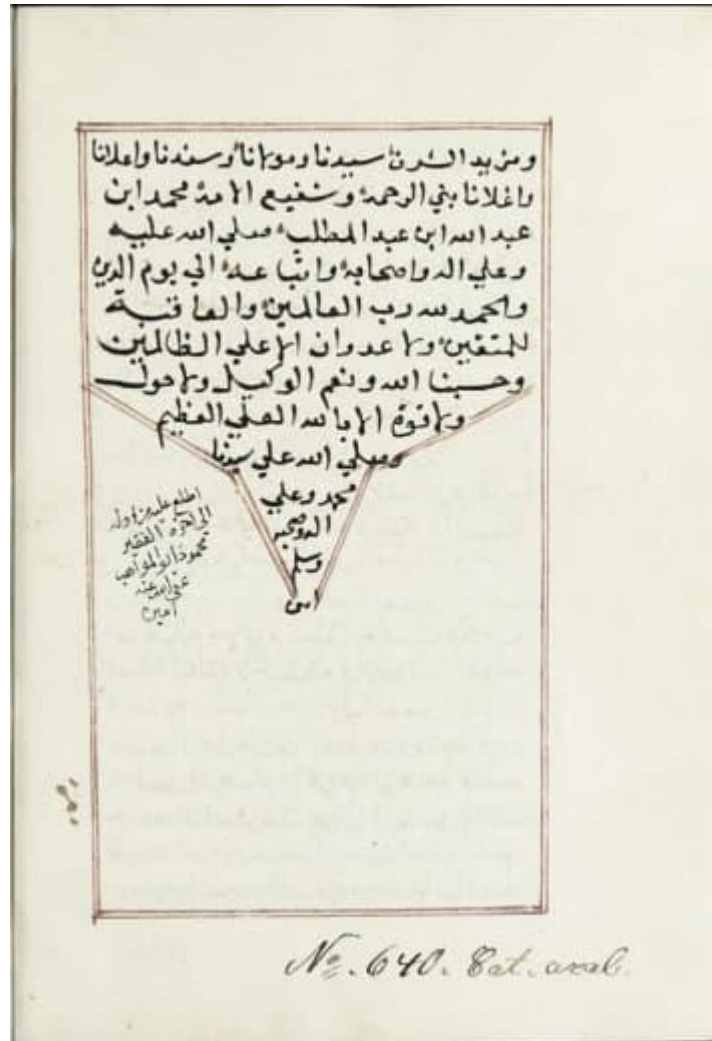 ومزيد الشرف سيدنا ومولانا وسندنا واعلانا
واغلانا بني الرحمة وشفيع الامة محمد ابن
عبد الله ابن عبد المطلب صلي الله عليه
وعلي اله واصحابه واتباعه الي يوم الدين
والحمد لله رب العالمين والعاقبة
للمتقين ولا عدوان الا علي الظالمين
وحسبنا الله ونعم الوكيل ولا حول
ولا قوة الا بالله العلي العظيم
وصلي الله علي سيدنا
محمد وعلي
اله وصحبه
وسلم
امين
اطلع عليه من اوله
الى اخره الفقير
محمود ابو المواهب
عفى الله عنه
امين
No. 640. Cat. arab.